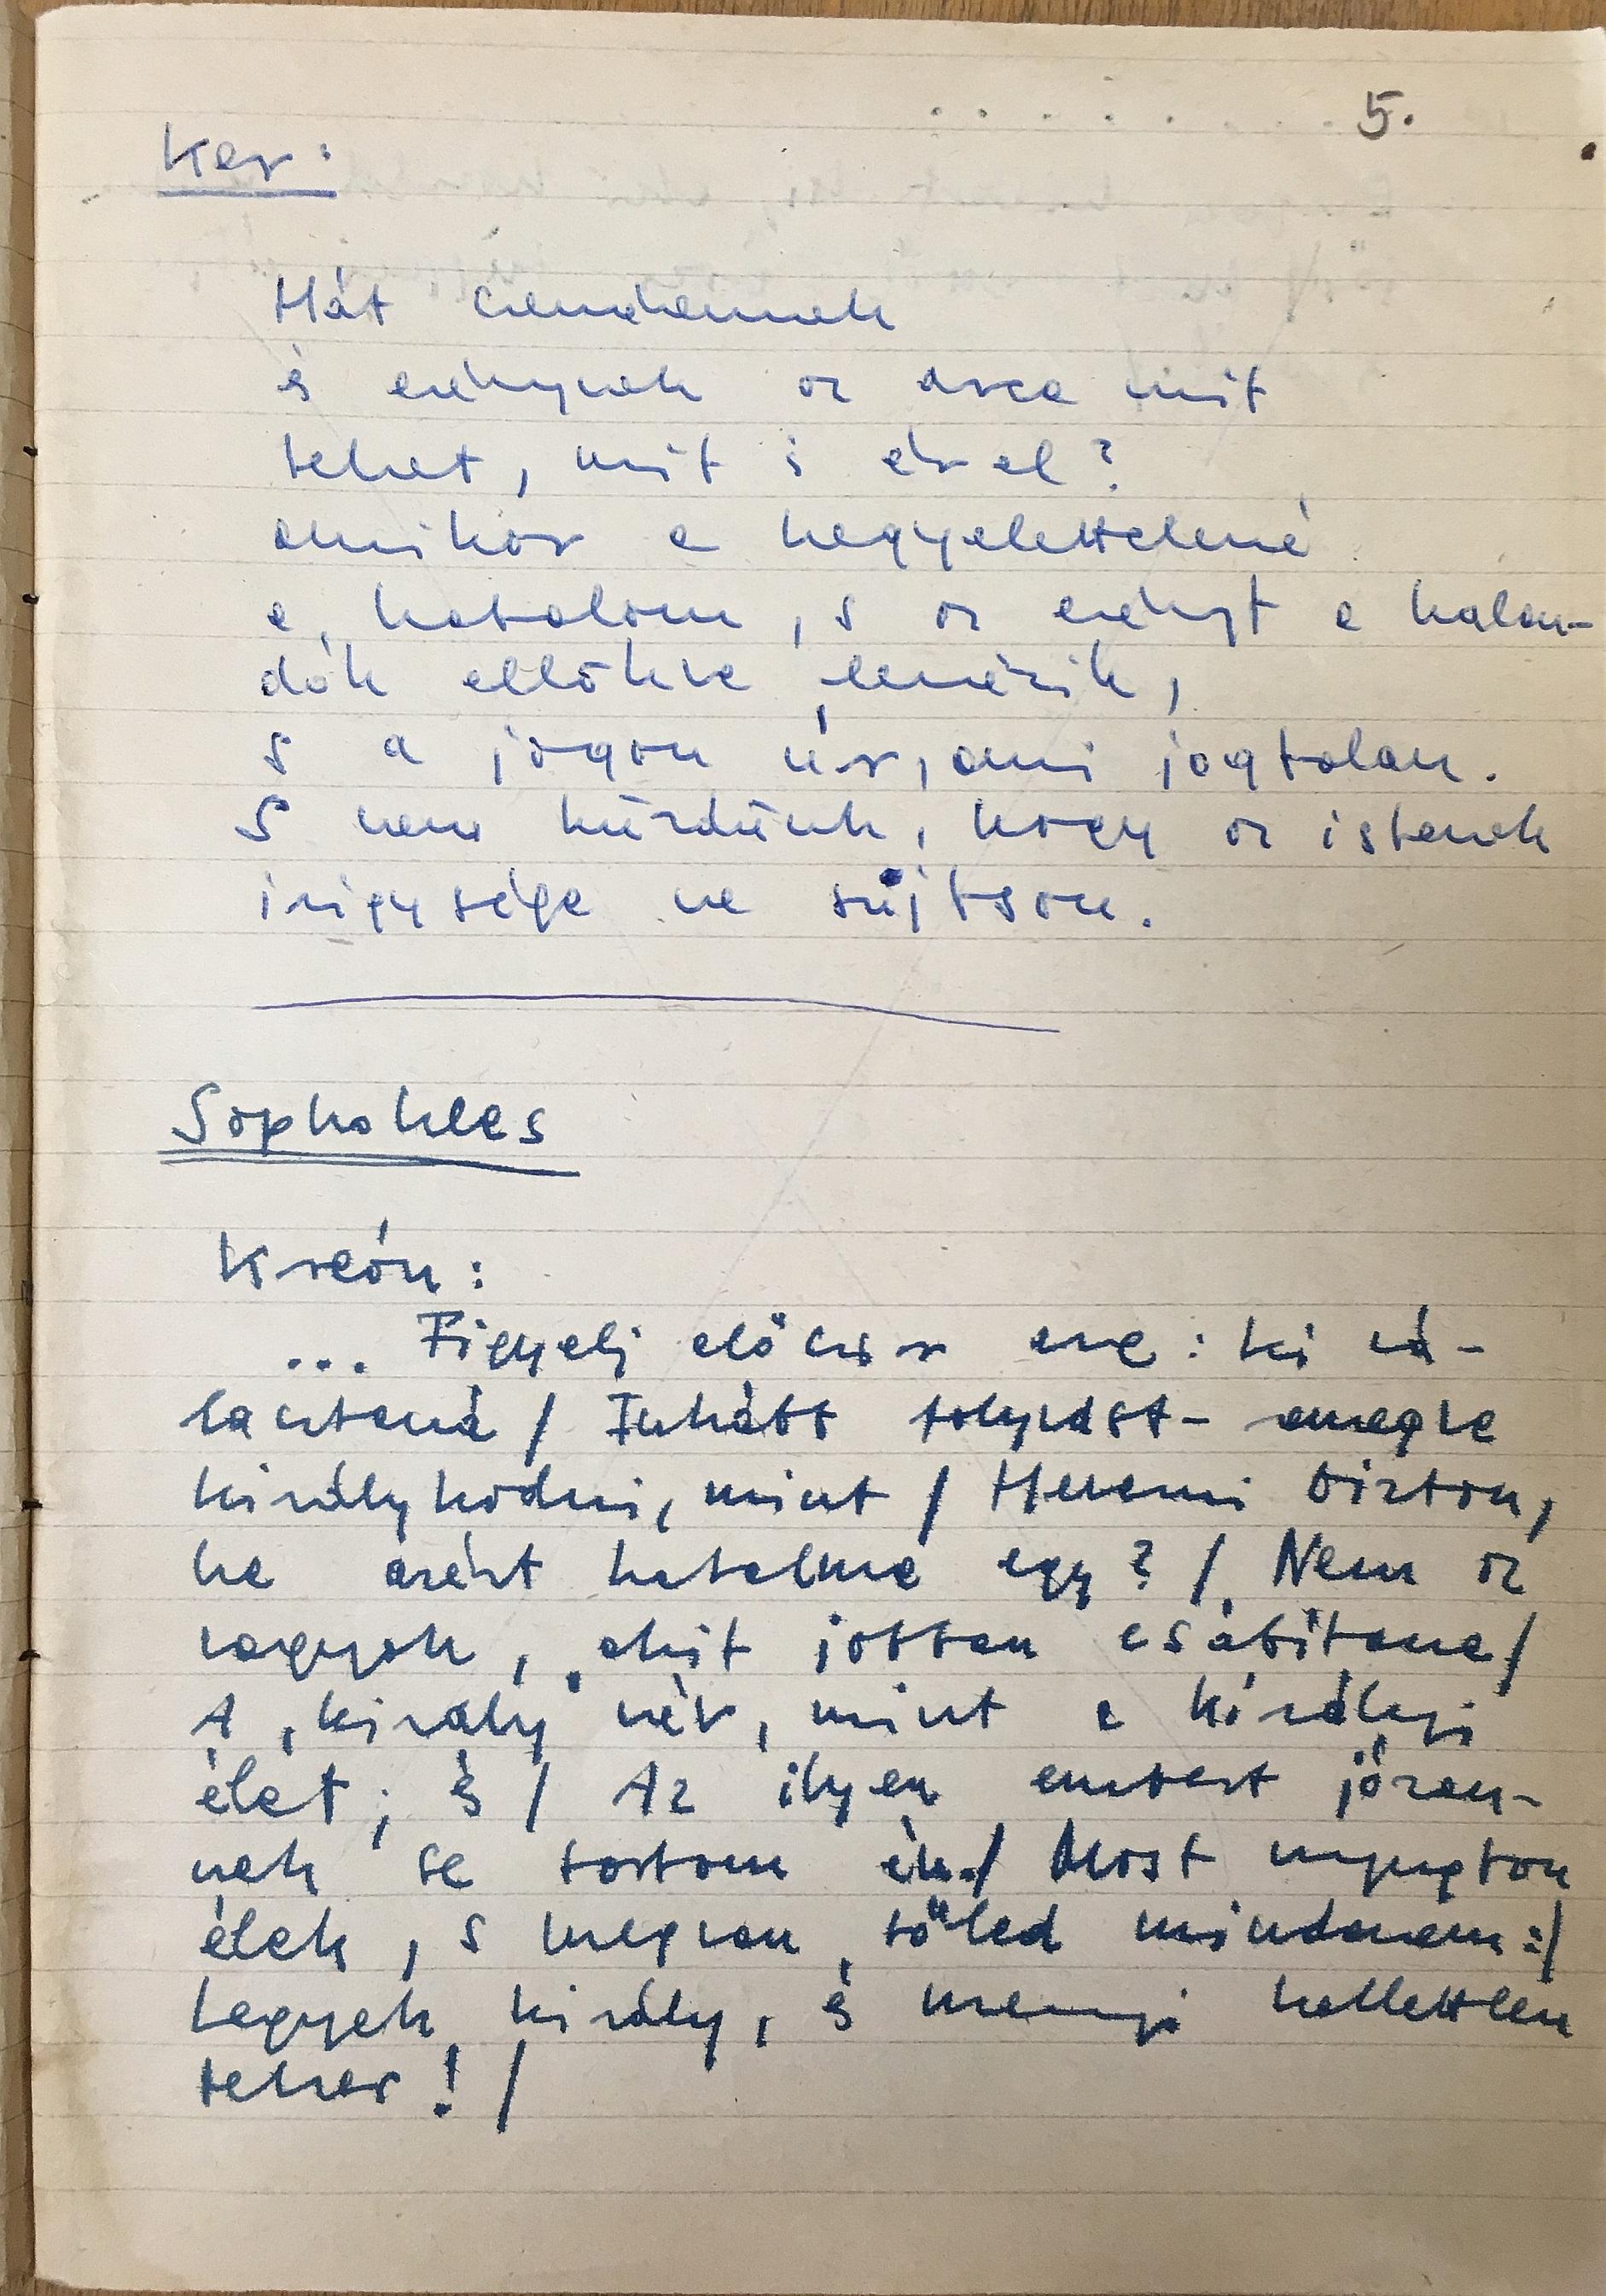 5.
Kar:
Hát szeméremnek
és erénynek az arca mit
tehet, mit is ér el?
amikor a kegyeletlené
a hatalom, s az erényt a halan-
dók ellökve lenézik,
s a jogon úr, ami jogtalan.
S nem küzdünk, hogy az istenek
irigysége ne sújtson.
Sophokles
Kreón:
... Figyelj először erre: ki vá-
lasztaná / Inkább folyvást remegve
királykodni, mint / Henyélni bizton,
ha azért hatalma egy? / Nem az
vagyok, akit jobban csábítana /
A „király" név, mint a királyi
élet; és / Az ilyen embert józan-
nak se tartom én. / Most nyugton
élek, s megvan tőled mindenem: /
Legyek király, és mennyi kelletlen
teher! /